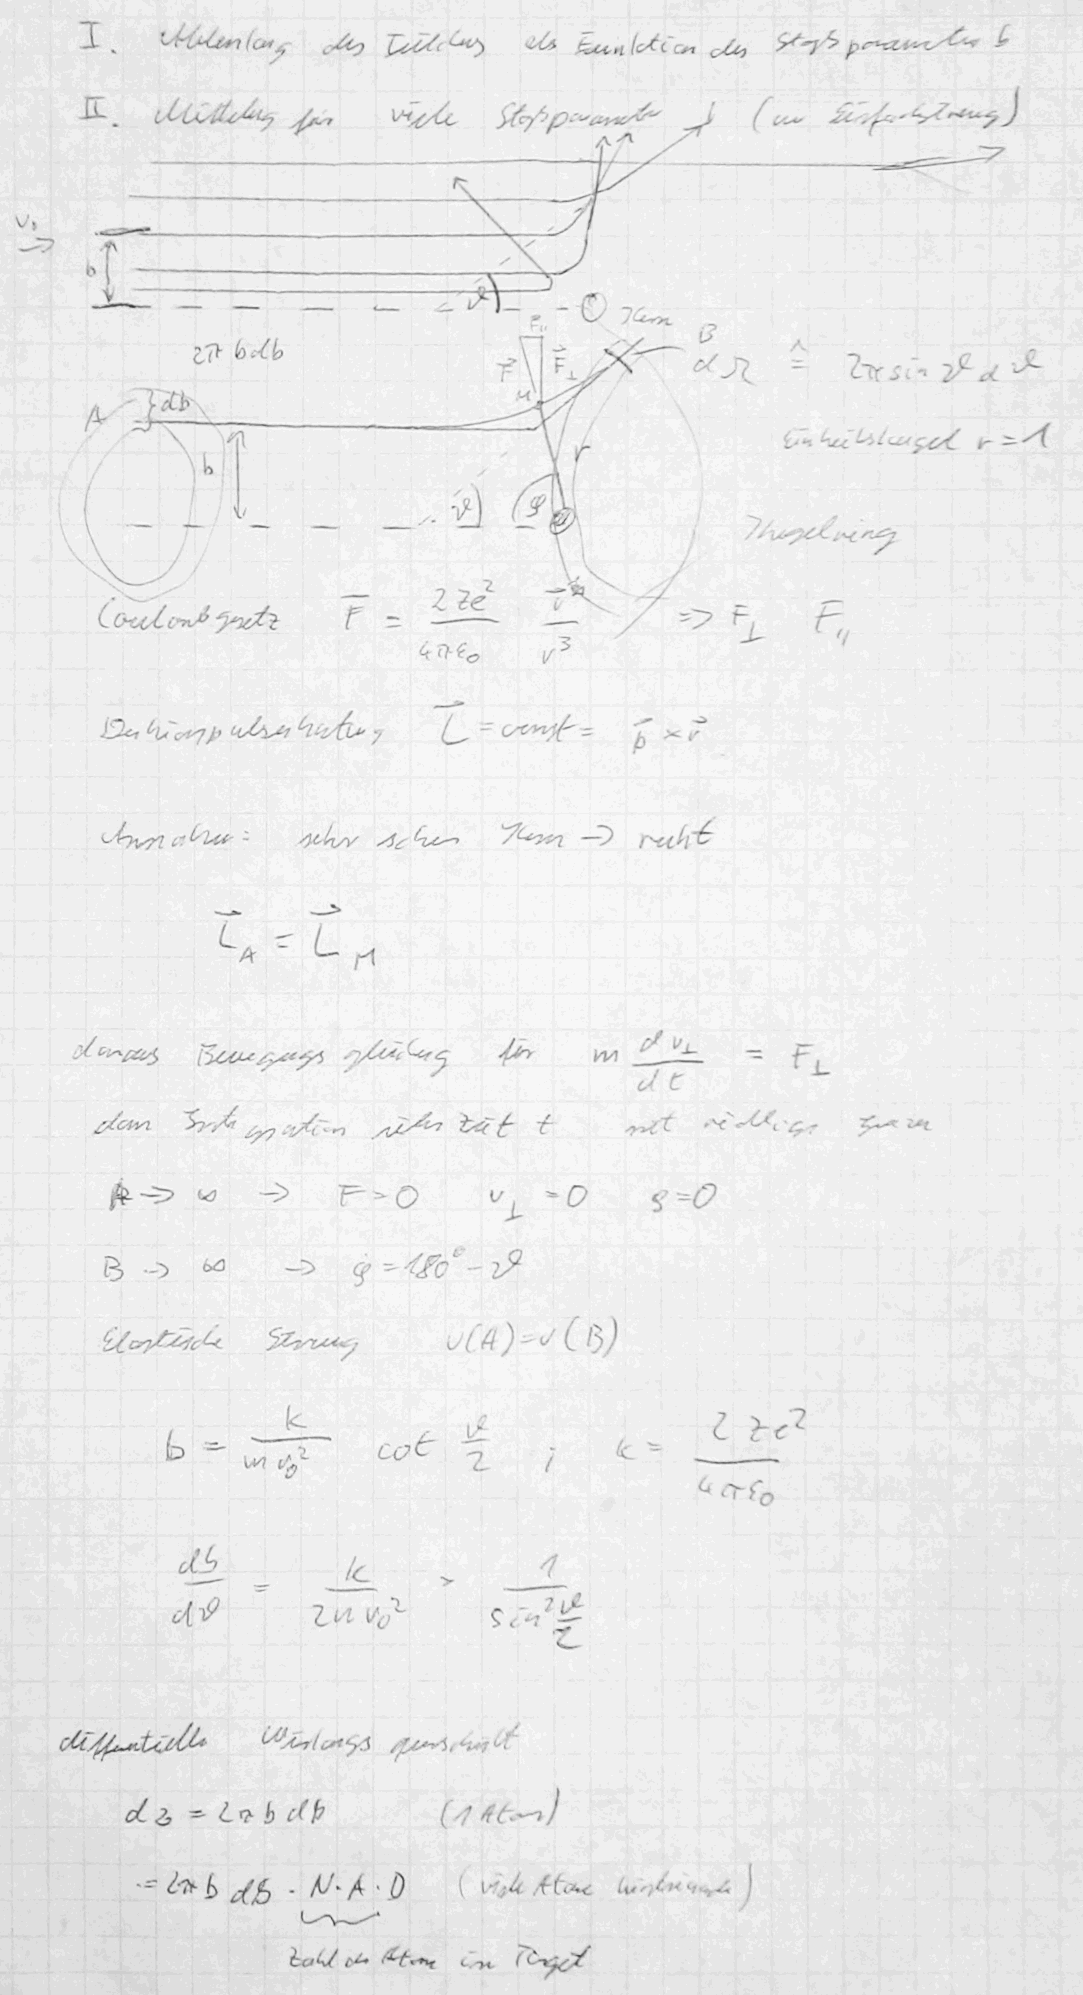 I. Ablenkung des Teilchens als Funktion des Stoßparameter b
II. Mittelung für viele Stoßparameter b (nur Einfachstreuung)
v₀
b
ϑ
Kern
2π b db
F∥
F⃗ F⃗⊥
M
B
dΩ ≙ 2π sin ϑ dϑ
A
db
Einheitskugel r = 1
b
r
ϑ
φ
Kugelring
Coulombgesetz F⃗ = 2Ze²/4πε₀ r⃗/r³ => F⊥ F∥
Drehimpulserhaltung L⃗ = const = p⃗ × r⃗
Annahme: sehr schwerer Kern -> ruht
L⃗_A = L⃗_M
daraus Bewegungsgleichung für m dv⊥/dt = F⊥
dann Integration über Zeit t mit richtigen Grenzen
A -> ∞ -> F = 0 v⊥ = 0 φ = 0
B -> ∞ -> φ = 180° - ϑ
Elastische Streuung v(A) = v(B)
b = k/mv₀² cot ϑ/2 ; k = 2Ze²/4πε₀
db/dϑ = k/2mv₀² · 1/sin² ϑ/2
differentielle Wirkungsquerschnitt
dσ = 2π b db (1 Atom)
= 2π b db · N·A·D (viele Atome)
Zahl der Atome im Target